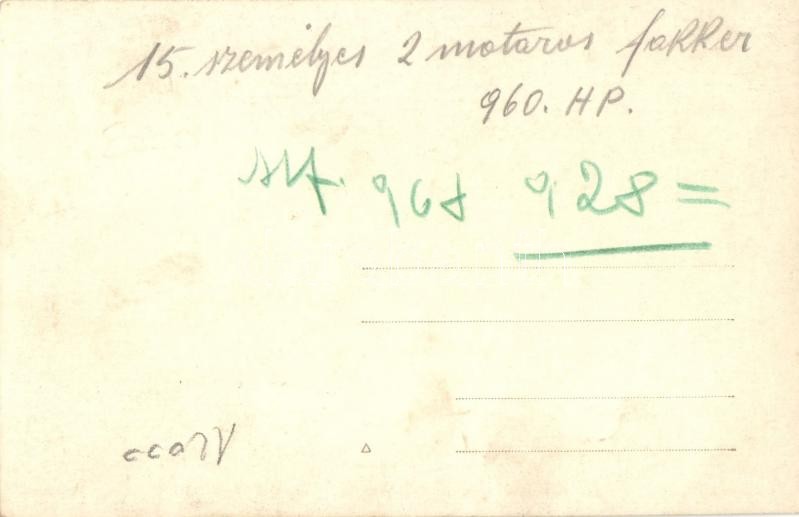 15. személyes 2 motoros fokker
960. HP.
968 928=